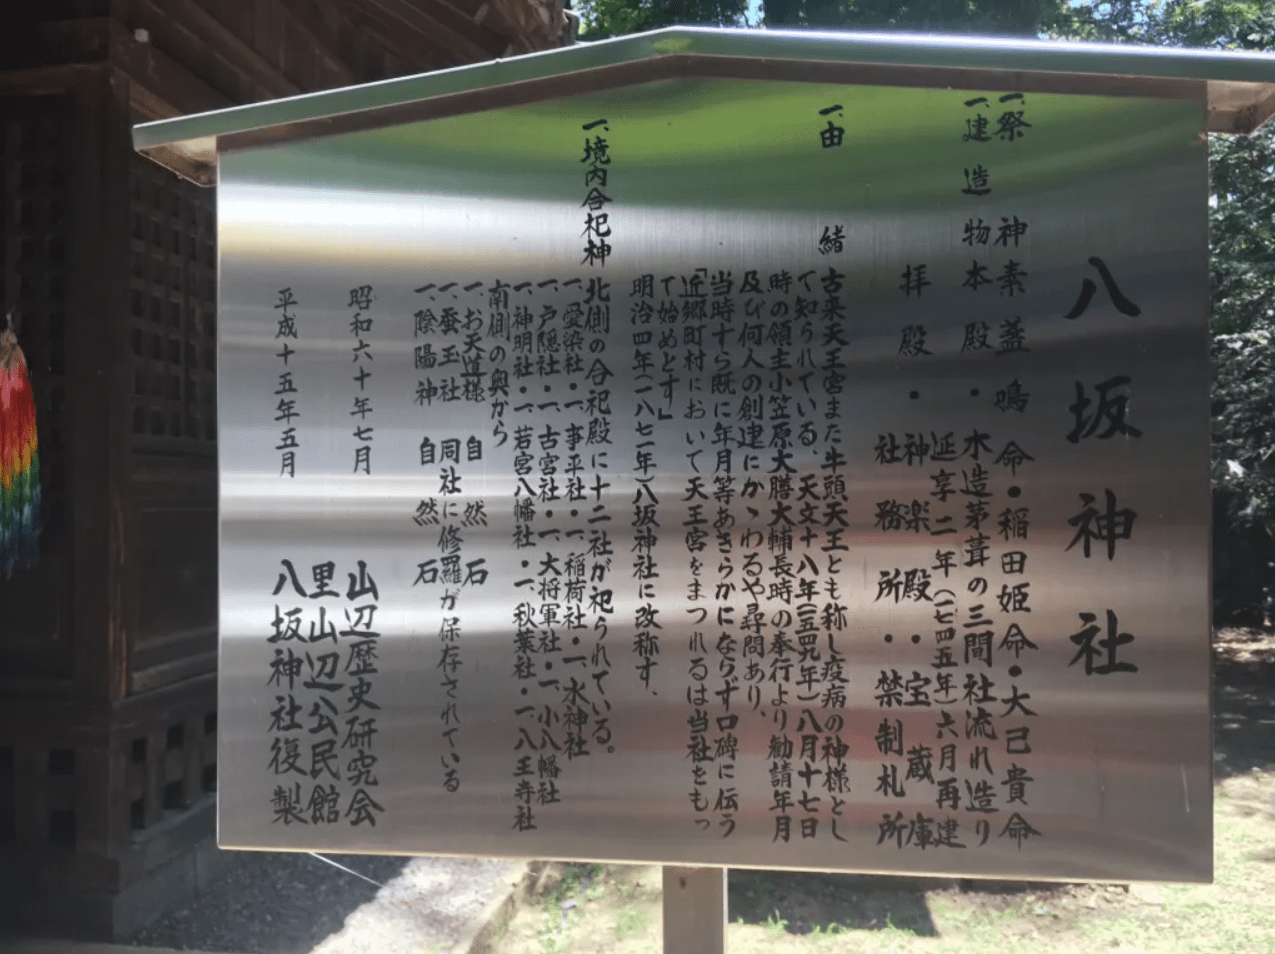 八坂神社
一、祭神 素盞鳴命・稲田姫命・大己貴命
一、建造物 本殿・木造茅葺の三間社流れ造り
延享二年(一七四五年)六月再建
拝殿・神楽殿・宝蔵庫
社務所・禁制札所
一、由緒 古来天王宮また牛頭天王とも称し疫病の神様とし
て知られている、天文十八年(一五四九年)八月十七日
時の領主小笠原大膳大輔長時の奉行より勧請年月
及び何人の創建にかゝわるや尋問あり、
当時すら既に年月等あきらかにならず口碑に伝う
「近郷町村において天王宮をまつれるは当社をもっ
て始めとす」
明治四年(一八七一年)八坂神社に改称す、
一、境内合祀神 北側の合祀殿に十二社が祀られている。
一、愛染社・一、事平社・一、稲荷社・一、水神社
一、戸隠社・一、古宮社・一、大将軍社・一、小八幡社
一、神明社・一、若宮八幡社・一、秋葉社・一、八王寺社
南側の奥から
一、お天道様 自然石
一、蚕玉社 同社に修羅が保存されている
一、陰陽神 自然石
昭和六十年七月 山辺歴史研究会
里山辺公民館
平成十五年五月 八坂神社復製